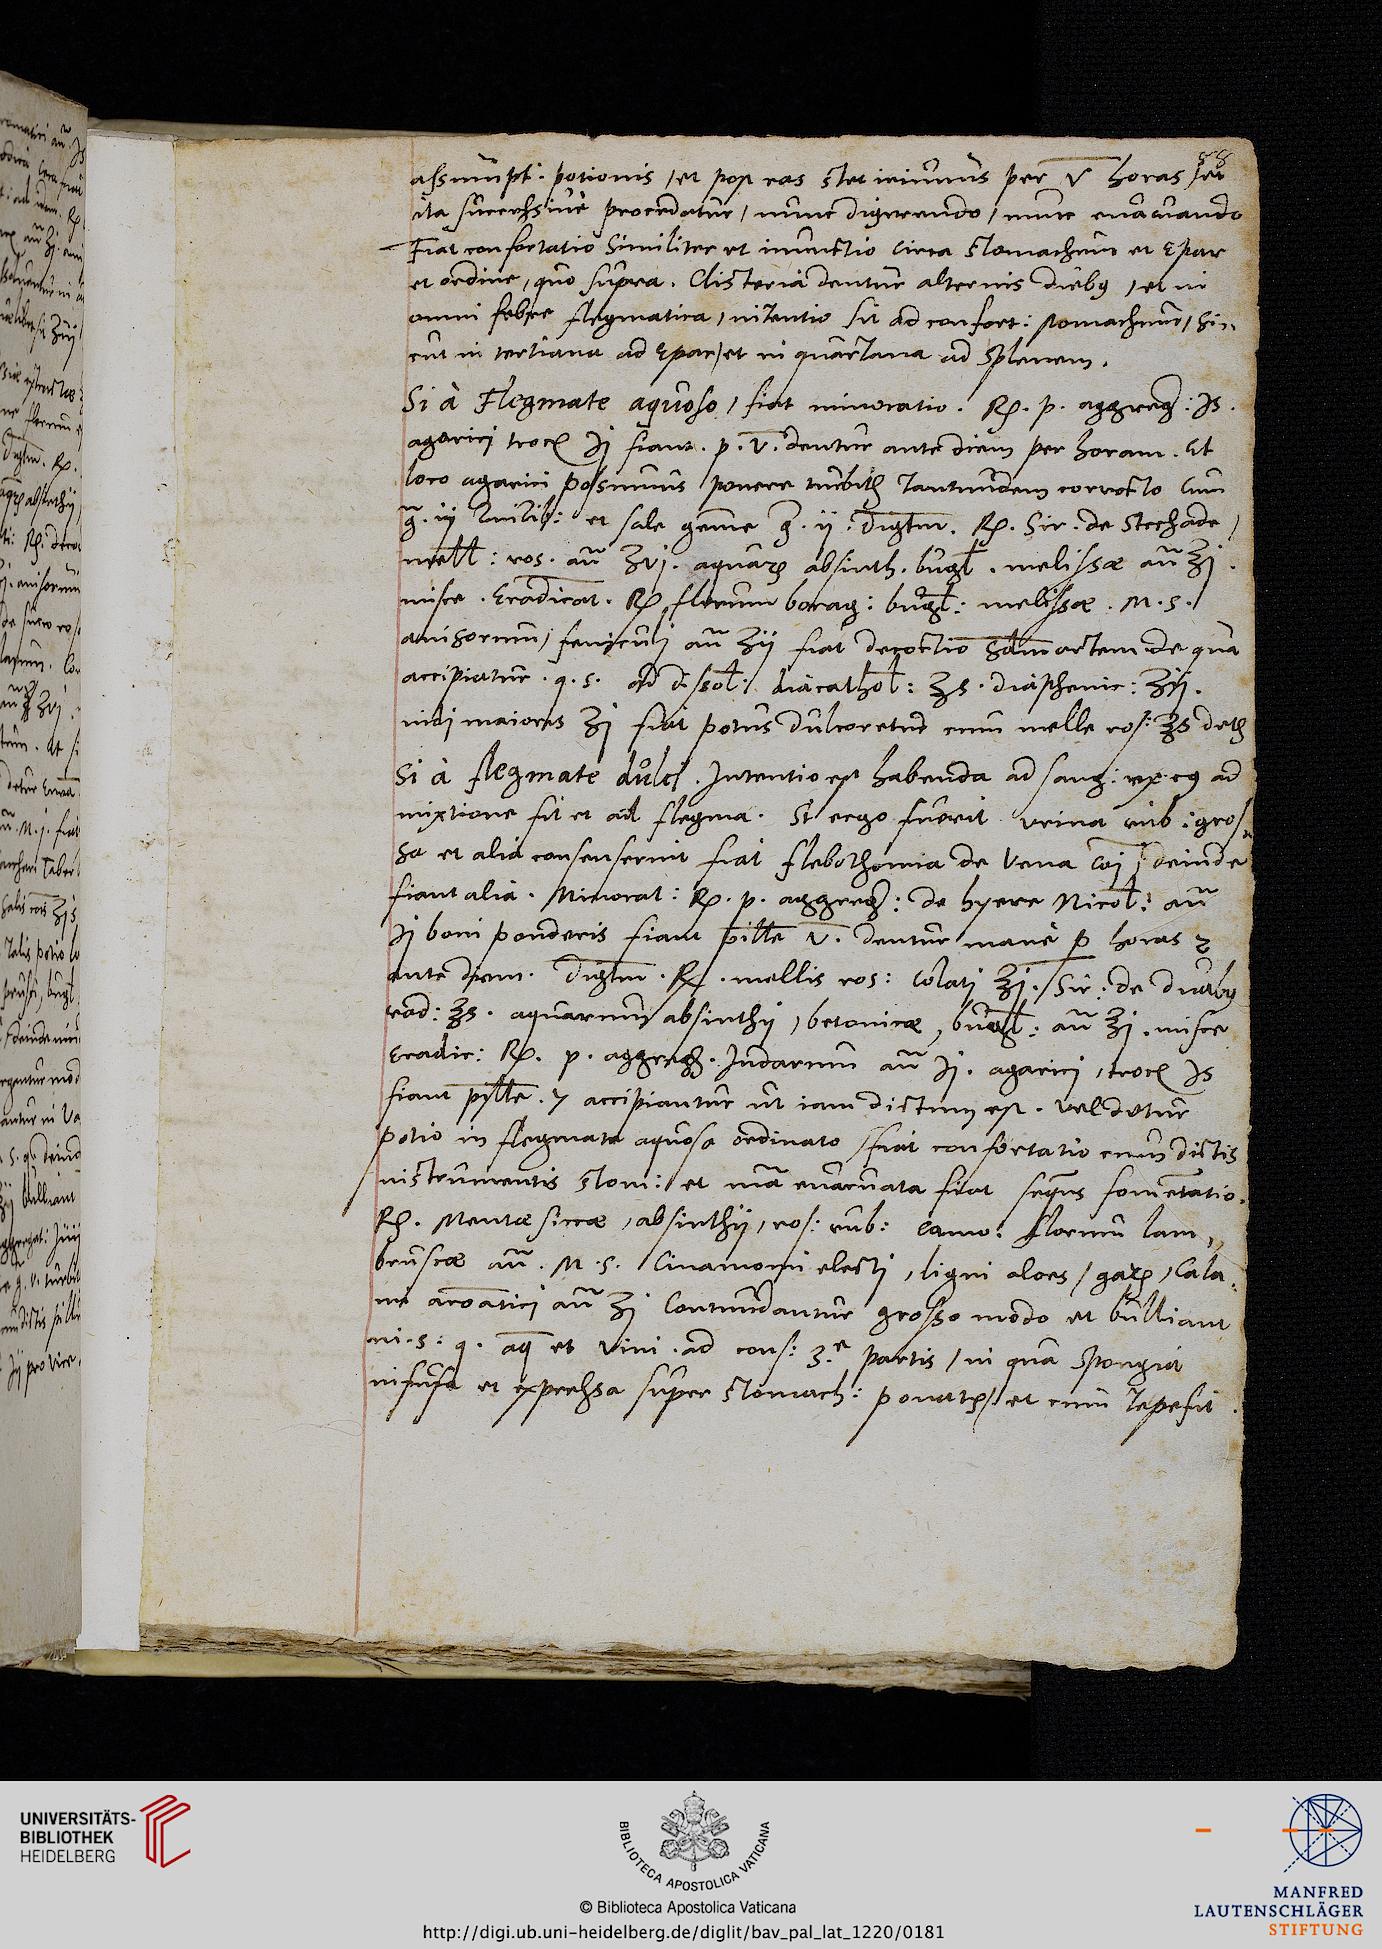 88
assumpt: potionis, et post eas stet ieiunus per v horas, et
ita successive procedatur, nunc digerendo, nunc evacuando
Fiat confortatio similiter et inunctio circa stomachum et Epar
et ordine, quo supra. Clisteria dentur alternis diebꝫ, et in
omni febre flegmatica, intentio sit ad confort: stomachum, si=
cut in tertiana ad Epar, et in quartana ad Splenem.
Si à Flegmate aquoso, fiat minoratio. ℞. p. aggreg: ℈s.
agarici troc ℈j fiant. p. v. dentur ante diem per horam. Et
loco agarici possumus ponere turbith tantundem correcto cum
g. iij zinzib: et sale gemme g. ij. digtm. ℞. Sir. de Stechade,
mell: ros. añ ʒvj. aquarꝫ absinth. bugl. melissæ añ ℥j.
misce. Eradicat. ℞ florum borag: bugl: melissæ. M. s.
anisorum, feniculi añ ʒij fiat decoctio sdm artem de qua
accipiatur. q. s. ad dissol: diacathol: ℥s. diaphenic: ʒij.
nidi maiores ʒj fiat potus dulcoretur cum melle ros: ℥s detꝫ
Si à flegmate dulci. Intentio est habenda ad sang: ex cꝫ ad
mixtione fit et ad flegma. Si ergo fuerit urina rub: gros=
sa et alia consenserint fiat flebothomia de vena coi, deinde
fiant alia. Minorat: ℞. p. aggreg: de hyere Nicol: añ
℈j boni ponderis fiant pille v. dentur manè p horas 2
ante diem. Digtm. ℞. mellis ros: colati ℥j. Sir: de duabꝫ
rad: ℥s. aquarum absinthij, betonicæ, bugl: añ ℥j. misce
Eradic: ℞. p. aggreg. Indarum añ ℈j. agarici, troc ℈s
fiant pille. 7 accipiantur ut iam dictum est. vel detur
potio in flegmate aquoso ordinato, fiat confortatio cum dictis
instrumentis stom: et mã evacuata fiat seqns fomētatio.
℞. Mentæ siccæ, absinthij, ros: rub: camo: florum lam=
bruscæ añ. M. s. Cinamomi electi, ligni aloes, gar, Cala=
me aromatici añ ʒj contundantur grosso modo et bulliant
in. s: q. aq et vini. ad cons: 3.e partis, in qua spongia
infusa et expressa super stomach: ponatꝫ, et cum tepefit.
UNIVERSITÄTS-
BIBLIOTHEK
HEIDELBERG
BIBLIOTECA APOSTOLICA VATICANA
© Biblioteca Apostolica Vaticana
http://digi.ub.uni-heidelberg.de/diglit/bav_pal_lat_1220/0181
MANFRED
LAUTENSCHLÄGER
STIFTUNG